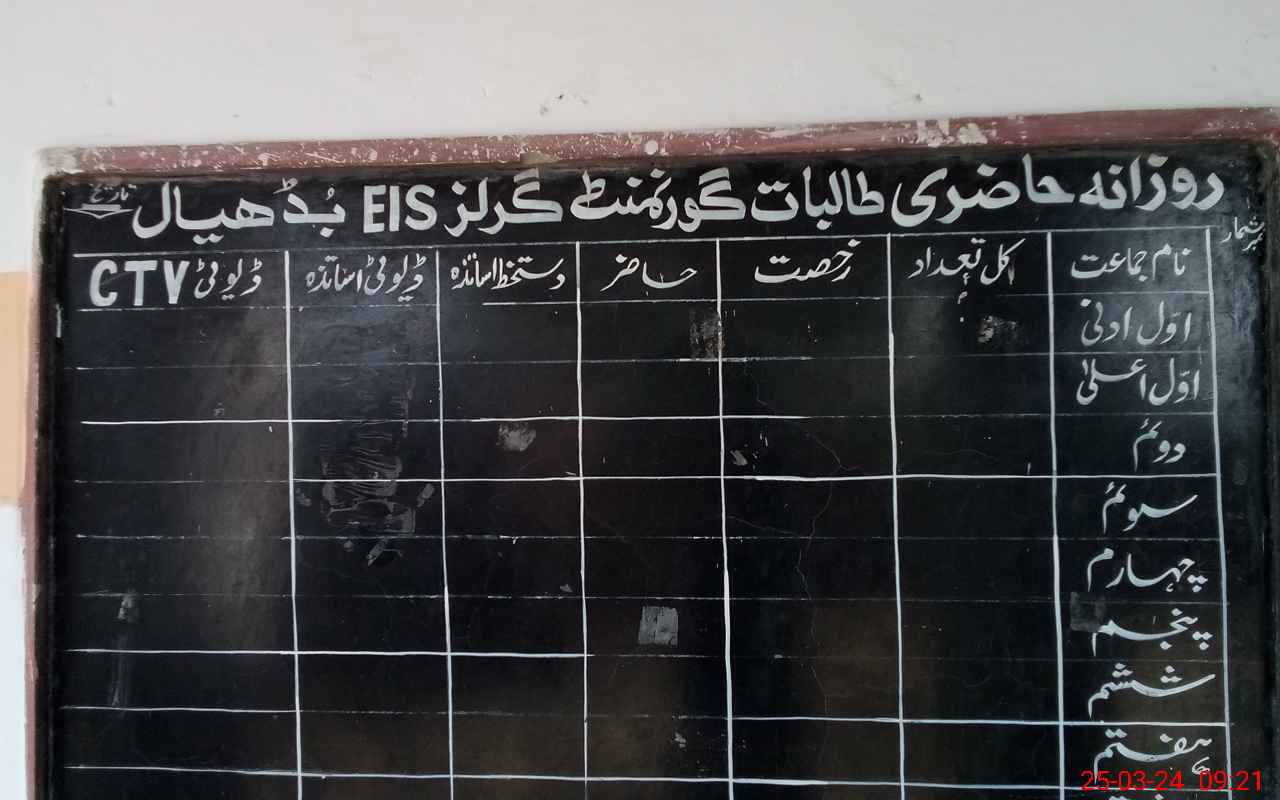 روزانہ حاضری طالبات گورنمنٹ گرلز EIS بُڈھیال تاریخ
نمبر شمار نام جماعت کل تعداد رخصت حاضر دستخط اساتذہ ڈیوٹی اساتذہ ڈیوٹی CTV
اوّل ادنیٰ
اوّل اعلیٰ
دوئم
سوئم
چہارم
پنجم
ششم
ہفتم
25-03-24 09:21